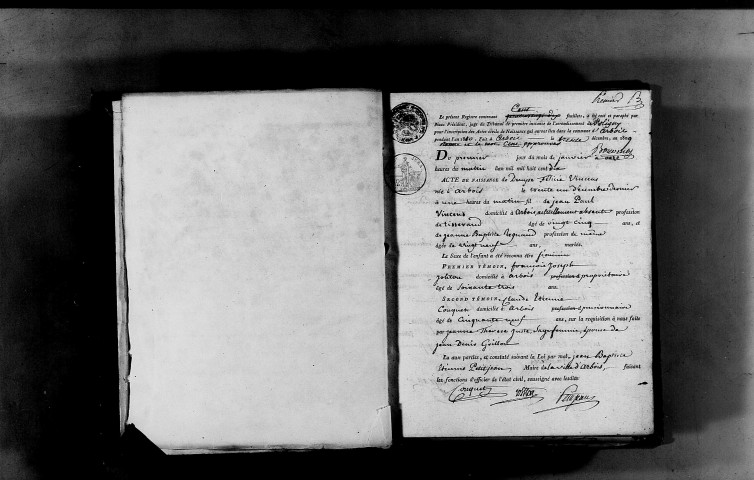 Premier
Le présent Registre contenant Cent feuillets, a été coté et paraphé par
Nous Président, juge du Tribunal de première instance de l'arrondissement de Poligny
pour l'inscription des Actes civils de Naissance qui auront lieu dans la commune d'Arbois
pendant l'an 1810. Fait à Arbois le trente décembre, an 1809
et le mot Cent approuvés
Du premier jour du mois de janvier à onze
heures du matin l'an mil huit cent dix
ACTE DE NAISSANCE de Félicie Vincens
née à Arbois le trente un décembre dernier
à une heures du matin fil de jean Paul
Vincens domicilié à Arbois, actuellement absent profession
de tisserand âgé de vingt cinq ans, et
de jeanne Baptiste Regnaud profession de même
âgée de vingt neuf ans, mariés.
Le Sexe de l'enfant a été reconnu être féminin
PREMIER TÉMOIN, françois Joseph
domicilié à arbois profession propriétaire
âgé de soixante trois ans.
SECOND TÉMOIN, Claude Etienne
Couquet domicilié à Arbois profession pensionnaire
âgé de Cinquante neuf ans, sur la requisition à nous faite
par jeanne Thérèse sagefemme, épouse de
jean Denis Guillou
Lu aux parties, et constaté suivant la Loi par moi, jean Baptiste
Petitjean, Maire de la ville d'Arbois, faisant
les fonctions d'officier de l'état civil, soussigné avec lesdits
Couquet